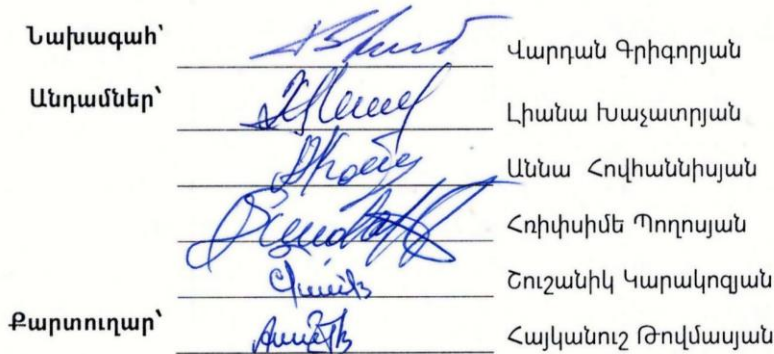 Նախագահ՝ Վարդան Գրիգորյան
Անդամներ՝ Լիանա Խաչատրյան
Աննա Հովհաննիսյան
Հռիփսիմե Պողոսյան
Շուշանիկ Կարակոզյան
Քարտուղար՝ Հայկանուշ Թովմասյան